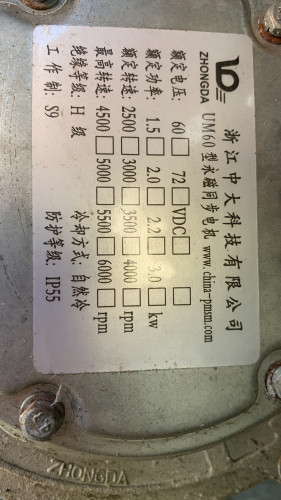 浙江中大科技有限公司
ZHONGDA UM60型永磁同步电机 www.china-pmsm.com
额定电压: 60□ 72□VDC□ □
额定功率: 1.5□ 2.0□ 2.2□ 3.0□ kw
额定转速: 2500□3000□3500□4000□rpm
最高转速: 4500□5000□5500□6000□rpm
绝缘等级: H 级 冷却方式: 自然冷
工 作 制: S9 防护等级: IP55
ZHONGDA